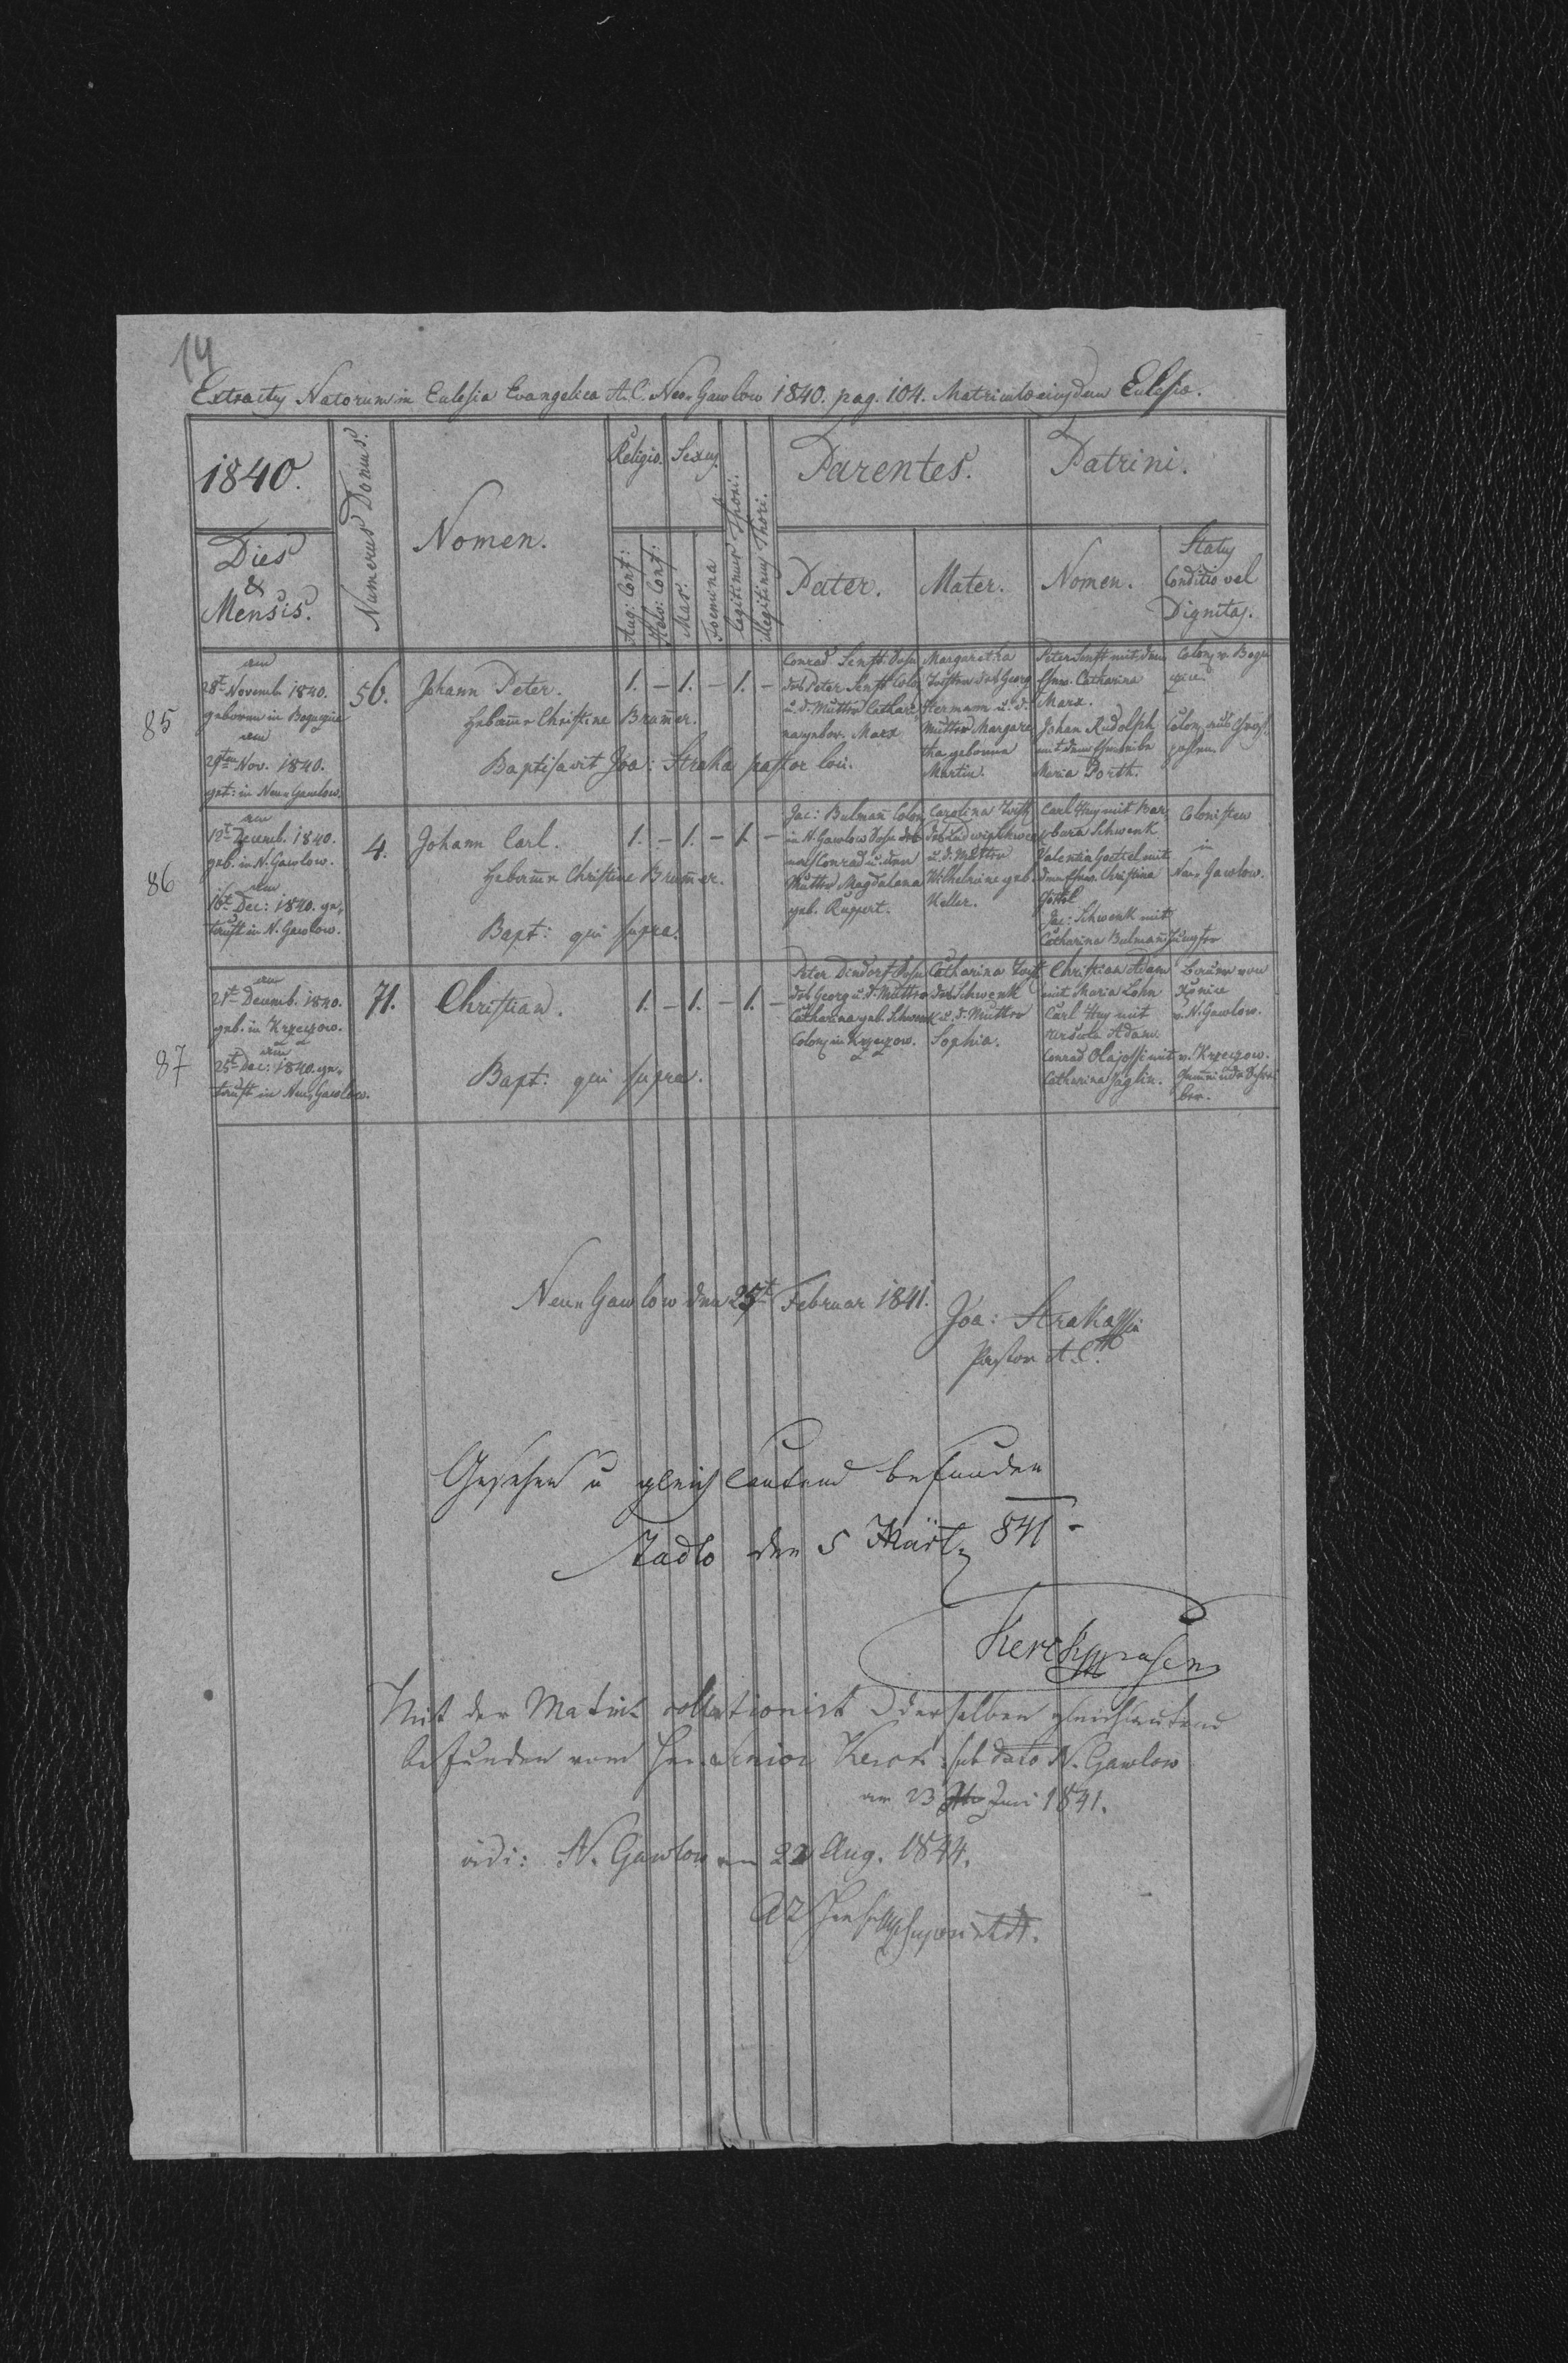 14
Extractus Natorum in Eclesia Evangelica A. C. Neu Gawlow 1840. pag. 104. Matriculae eiusdem Eclesiae.
1840.
Dies
&
Mensis.
Numerus Domus.
Nomen.
Religio.
Aug: Conf:
Helv: Conf:
Sexus
Mas.
Foemina
Legitimus Thori.
Illegitimus Thori.
Parentes.
Pater.
Mater.
Patrini.
Nomen.
Status
Conditio vel
Dignitas.
85
am
28t Novemb. 1840.
geboren in
am
29ten Nov. 1840.
get: in Neu Gawlow.
56.
Johann Peter.
Hebame Christine Bramer.
Baptisavit Joa: Straka pastor loci.
1. – 1. – 1. –
Conrad Senft Sohn
des Peter Senft Colon
u. d. Mutter Cathari
na gebor. Marx
Margaretha
Tochter des Georg
Hermann u. d.
Mutter Margare
tha geborne
Martin.
Peter Senft mit dem
Ehew. Catharina
Marx.
Johan Rudolph
mit dem Eheweibe
Maria Porth.
Colon. v.
Colon. aus
86
am
12t Decemb. 1840.
geb. in N. Gawlow.
am
16t Dec: 1840. ge,
tauft in N. Gawlow.
4.
Johann Carl.
Hebame Christine Bramer.
Bapt: qui supra.
1. – 1. – 1. –
Jac: Bulman Colon
in N. Gawlow Sohn des
Conrad u. der
Mutter Magdalena
geb. Ruppert.
Carolina Toch
des Ludwig
u. d. Mutter
Wilhelmine geb.
Keller.
Carl Hey mit Bar,
bara Schwenk
Valentin Goettel mit
dem Ehew. Christina
Jac: Schwenk mit
Catharina Bulman Jungfer
Colonisten
in
Neu Gawlow.
87
am
21t Decemb. 1840.
geb. in Krzeczow.
am
25t Dec: 1840. ge,
tauft in Neu Gawlow.
71.
Christian.
Bapt: qui supra.
1. – 1. – 1. –
Peter Dindorf Sohn
des Georg u. d. Mutter
Catharina geb. Schwenk
Colon. in Krzeczow.
Catharina Toch
des Schwenk
u. d. Mutter
Sophia.
Christian Adam
mit Maria Lohn
Carl Hey mit
Adam.
Conrad mit
Catharina Jäglin.
von
v. N. Gawlow.
v. Krzeczow.
Neu Gawlow den 25t Februar 1841.
Joa: Straka
Pastor A. C.
Gesehen u gleich lautend befunden
Stadlo den 5 Märtz 841
Mit der Matrik collationirt derselben gleichlautend
befunden vom Hrn. Senior sub dato N. Gawlow
am 23 Juni 1841.
vidi: N. Gawlow am 22 Aug. 1844.